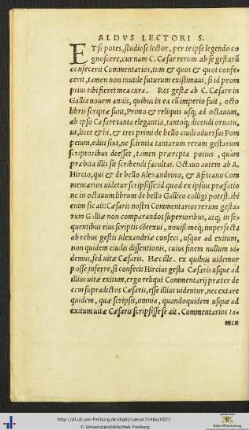 ALDVS LECTORI S.
ETsi potes, studiose lector, per te ipse legendo co
gnoscere, cur nam C. Cæsar rerum ab se gestarũ
confecerit Commentarios, tum & quot & quot confe
cerit, tamen non inutile futurum existimaui, si id prom
ptius tibi fieret mea cura. Res gestæ ab C. Cæsare in
Gallia nouem annis, quibus in ea cũ imperio fuit, octo
libris scriptæ sunt, Primo & reliquis usq; ad octauum,
ab ipso Cæsare tanta elegantia, tantoq; dicendi ornatu,
ut, licet & hi, & tres primi de bello ciuili aduersus Pom
peium, editi sint, ne scientia tantarum rerum gestarum
scriptoribus deesset, tamen præcepta potius, quam
præbita illis sit scribendi facultas. Octauo autem ab A.
Hircio, qui & de bello Alexandrino, & Africano Com
mentarios uidetur scripsisse id quod ex ipsius præfatio
ne in octauum librum de bello Gallico colligi potest. ibi
enim sic ait: Cæsaris nostri Commentarios rerum gestarũ
Galliæ non comparandos superioribus, atq; in se
quentibus eius scriptis contexui, nouissimeq; imperfecta
ab rebus gestis Alexandriæ confeci, usque ad exitum,
non quidem ciuilis dissentionis, cuius finem nullum ui
demus, sed uitæ Cæsaris. Hæc ille. ex quibus uidemur
posse inferre, si confecit Hircius gesta Cæsaris usque ad
illius uitæ exitum, ergo reliqui Commentarij præter de
cem supradictos Cæsaris, esse illius uidentur, nec extare
quidem, quæ scripsit, omnia, quandoquidem usque ad
exitum uitæ Cæsaris scripsisse se ait. Commentarios ta
http://dl.ub.uni-freiburg.de/diglit/caesar1519bd/0027
© Universitätsbibliothek Freiburg